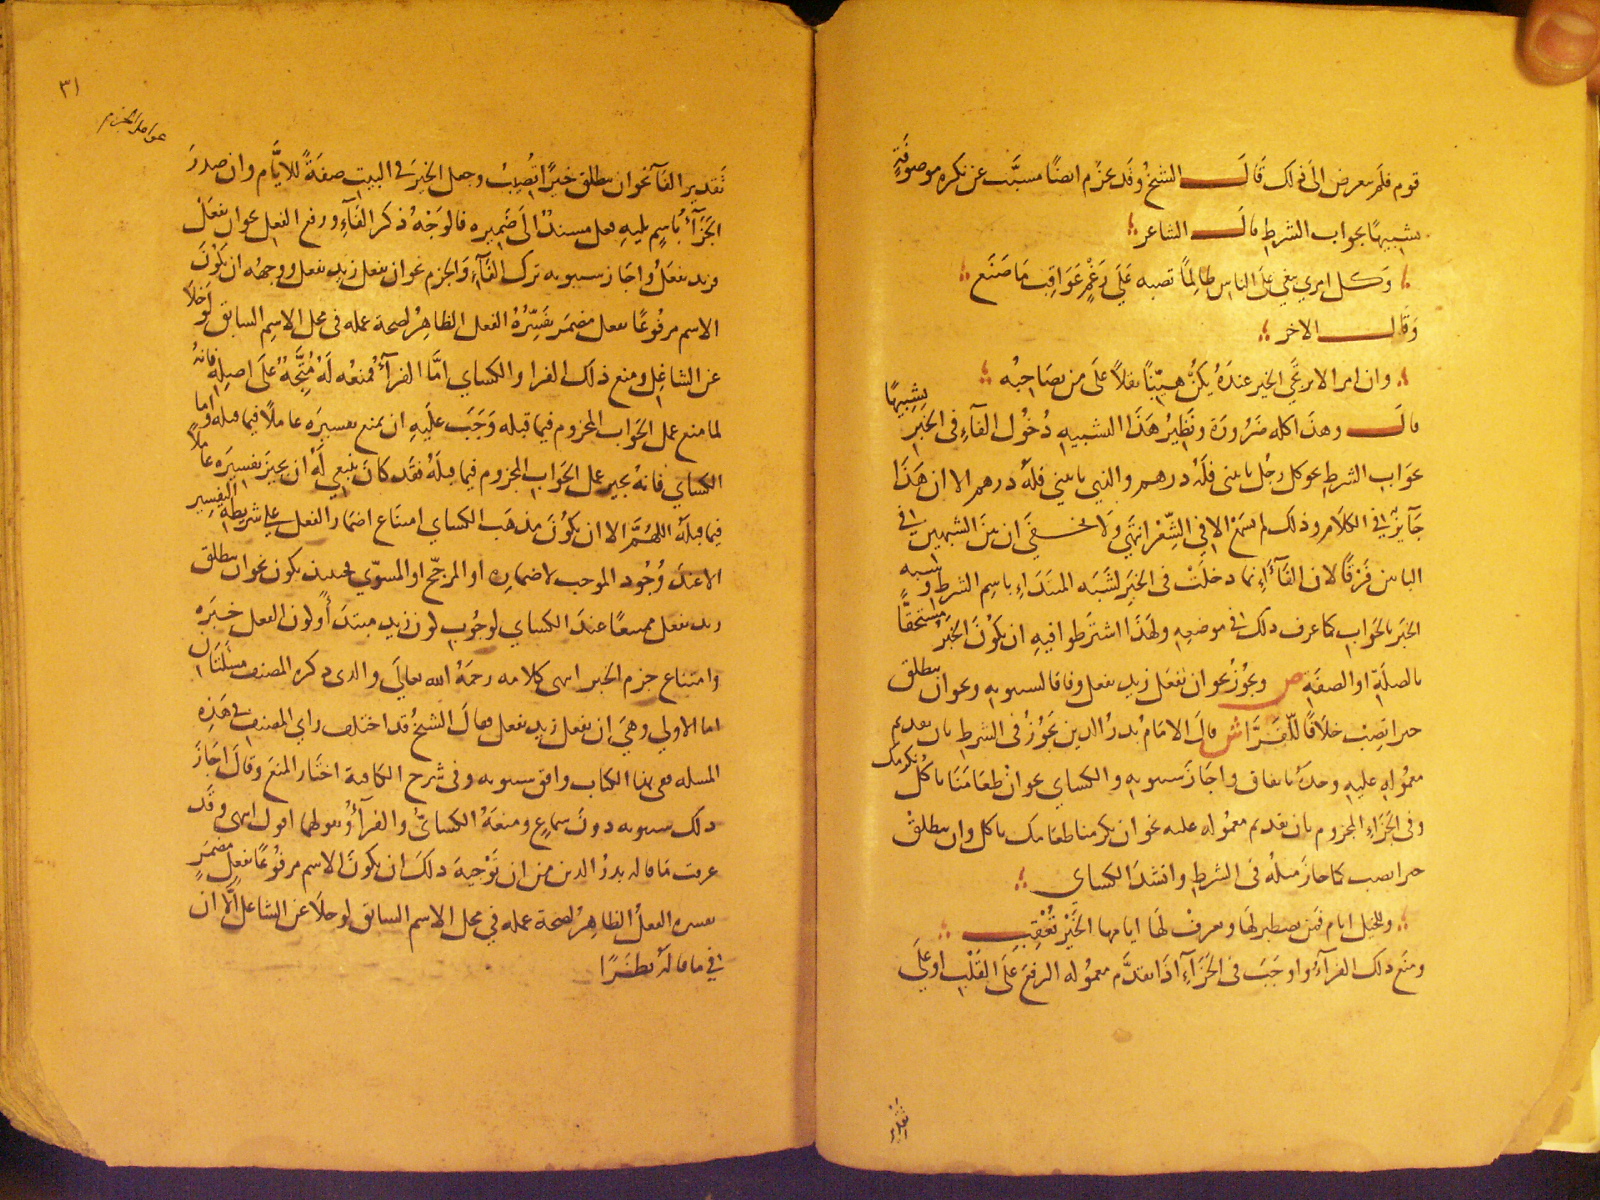 قوم فلم يتعرض الى ذلك قَالَ الشيخُ وقَد جزم ايضًا مسبَّب عن نكرة موصوفَةٍ
تشبيهًا بجواب الشرطِ قالَ الشاعر
وَكل امرئ يبغي على الناس ظالمًا تصبه عَلَى رَغْمٍ عَوَاقِب مَا صَنَع
وَقَالَ الاخر
وان امرا لا يرتجَى الخير عندَهُ يكنْ هيّنًا ثقلًا عَلَى من يصَاحِبُه
قالَ وهذَا كله ضَرُورَة ونَظِيرُ هَذَا التشبيهِ دُخُول الفَآءِ فى الخبَرِ تشبيهًا
بجَوَاب الشرطِ نحو كل رجُل ياتينى فَلَهُ درهم والذي ياتينى فلَهُ درهم الا ان هَذَا
جَآيزٌ فى الكلَام وذلك لم يسمَعْ الا فى الشِّعْر انتهَى وَلَا يخفَى ان بينَ الشبهين فى
البابين فَرْقًا لان الفَآءَ انما دخلَتْ فى الخبَر لشَبَه المبتَدَاءِ باسِم الشرطِ وشبه
الخبَر بالجَوابِ كما عرف ذلك فى موضعِهِ ولهَذَا اشترَطُوا فيهِ ان يكوُنَ الخبَرُ مستَحقًا
بالصلَةِ او الصفَةِ ص ويجُوزُ نحو ان تفعَل زيد يفعل وفاقا لسيبويهِ ونحو ان ينطلق
خيرا تصِبْ خلافًا للفَرَّا ش قالَ الامَامُ بَدرُ الدين يجَوُزُ فى الشرطِ بان تقديم
معمُولِهِ عليهِ وحدَهُ باتفاق واجَازَ سيبويهِ والكساي نحو انْ طعَامَنَا تاكُلْ نكرمك
وفى الجَزَاءِ المجزوم بان تقديم معمُولهِ عليه نحو ان تكرمنا طعامك ناكل وان ينطلقْ
خيرا يصب كما جازَ مثلهُ فى الشرطِ وانشدَ الكساي
وللخيل ايام فمَن يصطبر لهَا ويعرفْ لهَا ايامها الخَيْرَ تُعْقِبِ
ومنَع ذلك الفرآءُ واوجَبَ فى الجَزَآءِ اذَا تقدَّم معمُوله الرفعَ عَلَى القَلْبِ او عَلَى
تقدير
٣١
عوامل الجزم
تَقدير الفَآءِ نحو ان ينطلق خيرًا تُصِيبُ وجعل الخيرَ فى البيتِ صفَةً للايَّام وان صدرَ
الجَزَآءُ باسمٍ يليهِ فعل مسندٌ الَى ضَمِيرِه فالوَجْهُ ذكر الفَآءِ ورفع الفعل نحو ان يفعَلْ
فزيد يفعَلُ واجَازَ سيبويه ترك الفَآءِ وَالجزم نحو ان يفعل زيد يفعل ووجهُه ان يكُونَ
الاسم مرفُوعًا بفعل مضمَر يفَسِّرُهُ الفعل الظاهِرُ لصحة عمله فى محل الاسم السابق لَوْ خلَا
عن الشاغِل ومنع ذلك الفرا والكساي امَّا الفرآءُ فمنعُه لَهُ مُتَّجِهٌ عَلَى اصلِهِ فانهُ
لما منع عمل الجَوَاب المجزوم فيما قبله وَجَبَ علَيهِ ان يمنع تفسيرَه عاملًا فيما قبلهُ واما
الكساي فانهُ يجيز عمل الجَوَاب المجزوم فيما قبلَهُ فقَد كانَ ينبغى لَهُ ان يجيز تفسيرَه عاملًا
فيما قبلَهُ اللهُمَّ الا ان يكُونَ مذهَب الكساي امتناع اضمار الفعل على شريطة التفسير
الا عندَ وُجُود الموجب لاضمارِه او المرجّح او المسوّي فحينئذ يكون نحو ان ينطلق
زيد يفعل ممتنعًا عندَ الكساي لوجُوب لون زيد مبتدَأً ولون الفعل خبَرَه
وامتناع جزم الخبر انتهى كلامه رحمَهُ الله تعالَى والذى ذكره المصنف مسئلتَان
اما الاولى وهىَ ان يفعل زيد يفعل فقالَ الشيخُ قد اختلف راي المصنف فى هَذِه
المسله ففى هذا الكتاب وافق سيبويه وفى شرح الكافية اختَار المنعَ وقالَ اجَازَ
ذلك سيبويه دونَ سمَاعٍ ومنعَهُ الكسائىُّ والفرآءُ وبقولهما اقول انتهى وقَد
عرفت مَا قاله بدرُ الدين من ان تَوْجيهَ ذلكَ ان يكونَ الاسم مرفُوعًا بفعل مضمَرٍ
يفسره الفعلُ الظاهِرُ لصحة عمله في محل الاسم السابق لو خلَا عن الشاغل الَّا ان
في ما قالَهُ نظَرًا